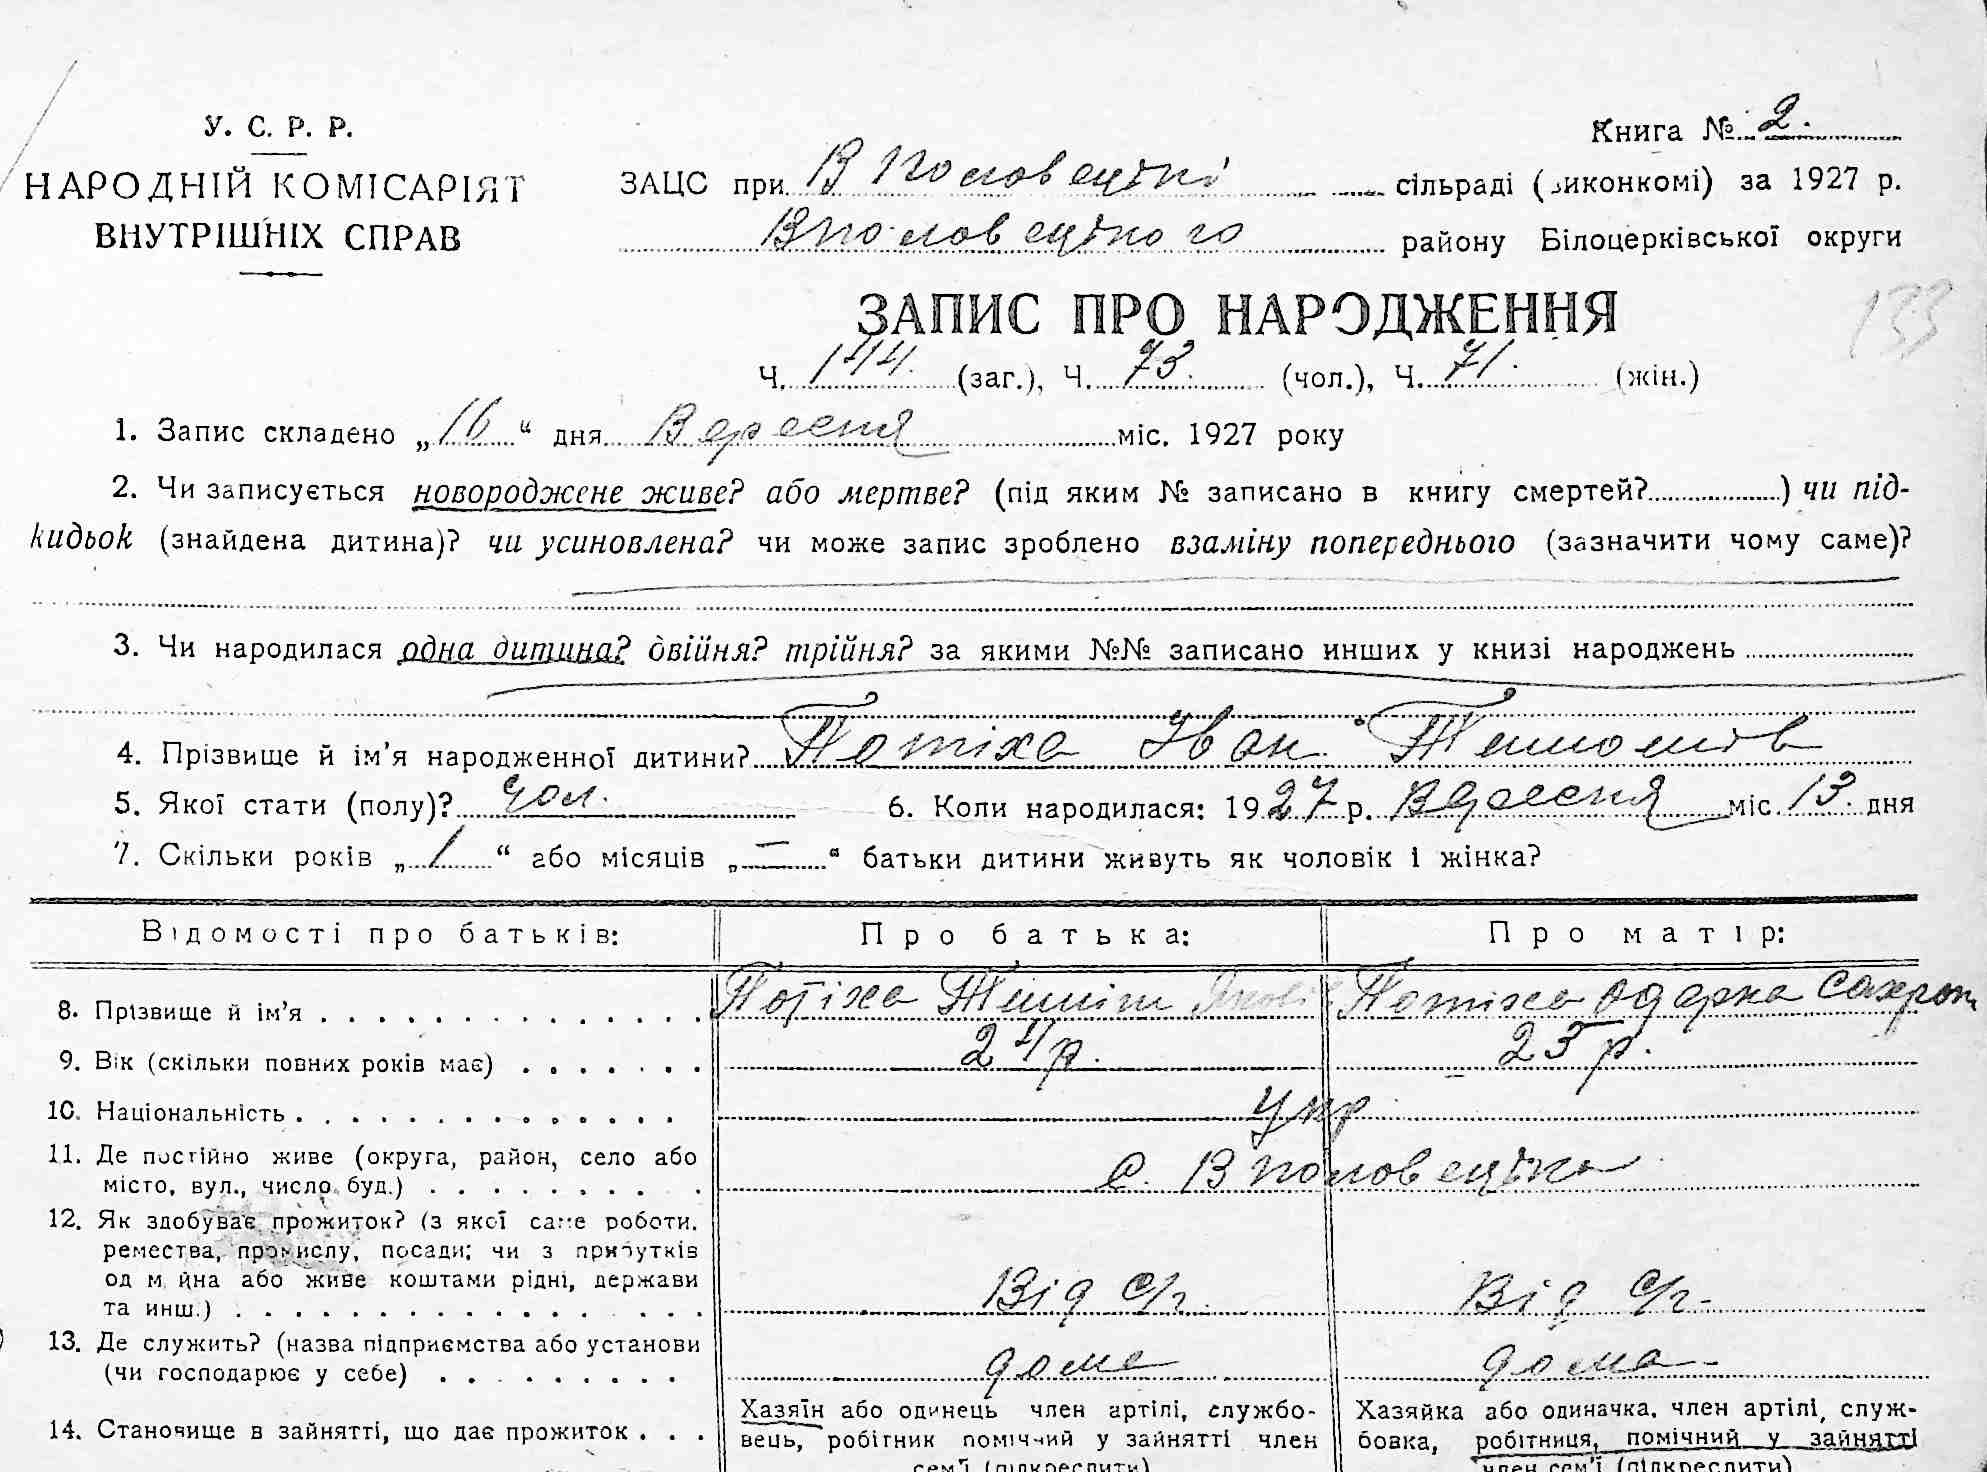 У. С. Р. Р.
НАРОДНІЙ КОМІСАРІЯТ
ВНУТРІШНІХ СПРАВ
Книга № 2.
ЗАЦС при В Половецькі сільраді (виконкомі) за 1927 р.
ВПоловецького району Білоцерківської округи
ЗАПИС ПРО НАРОДЖЕННЯ
133
Ч. 144. (заг.), Ч. 73. (чол.), Ч. 71. (жін.)
1. Запис складено „16“ дня Вересня міс. 1927 року
2. Чи записується новороджене живе? або мертве? (під яким № записано в книгу смертей?) чи під-
кидьок (знайдена дитина)? чи усиновлена? чи може запис зроблено взаміну попереднього (зазначити чому саме)?
3. Чи народилася одна дитина? двійня? трійня? за якими №№ записано инших у книзі народжень
4. Прізвище й ім'я народженної дитини? Потіха Іван Тимошів
5. Якої стати (полу)? чол. 6. Коли народилася: 1927 р. Вересня міс. 13. дня
7. Скільки років „1“ або місяців „—“ батьки дитини живуть як чоловік і жінка?
Відомості про батьків: Про батька: Про матір:
8. Прізвище й ім'я Потіха Тиміш Яковів Потіха Одарка Сахрон
9. Вік (скільки повних років має) 24р. 25 р.
10. Національність укр
11. Де постійно живе (округа, район, село або
місто, вул., число буд.) с. В Половецька
12. Як здобуває прожиток? (з якої саме роботи,
ремества, промислу, посади; чи з прибутків
од майна або живе коштами рідні, держави
та инш.) Від с/г. Від с/г.
13. Де служить? (назва підприємства або установи
(чи господарює у себе) дома дома
14. Становище в зайнятті, що дає прожиток
Хазяїн або одинець член артілі, службо-
вець, робітник помічний у зайнятті член
сем'ї (підкреслити)
Хазяйка або одиначка, член артілі, служ-
бовка, робітниця, помічний у зайнятті
член сем'ї (підкреслити)